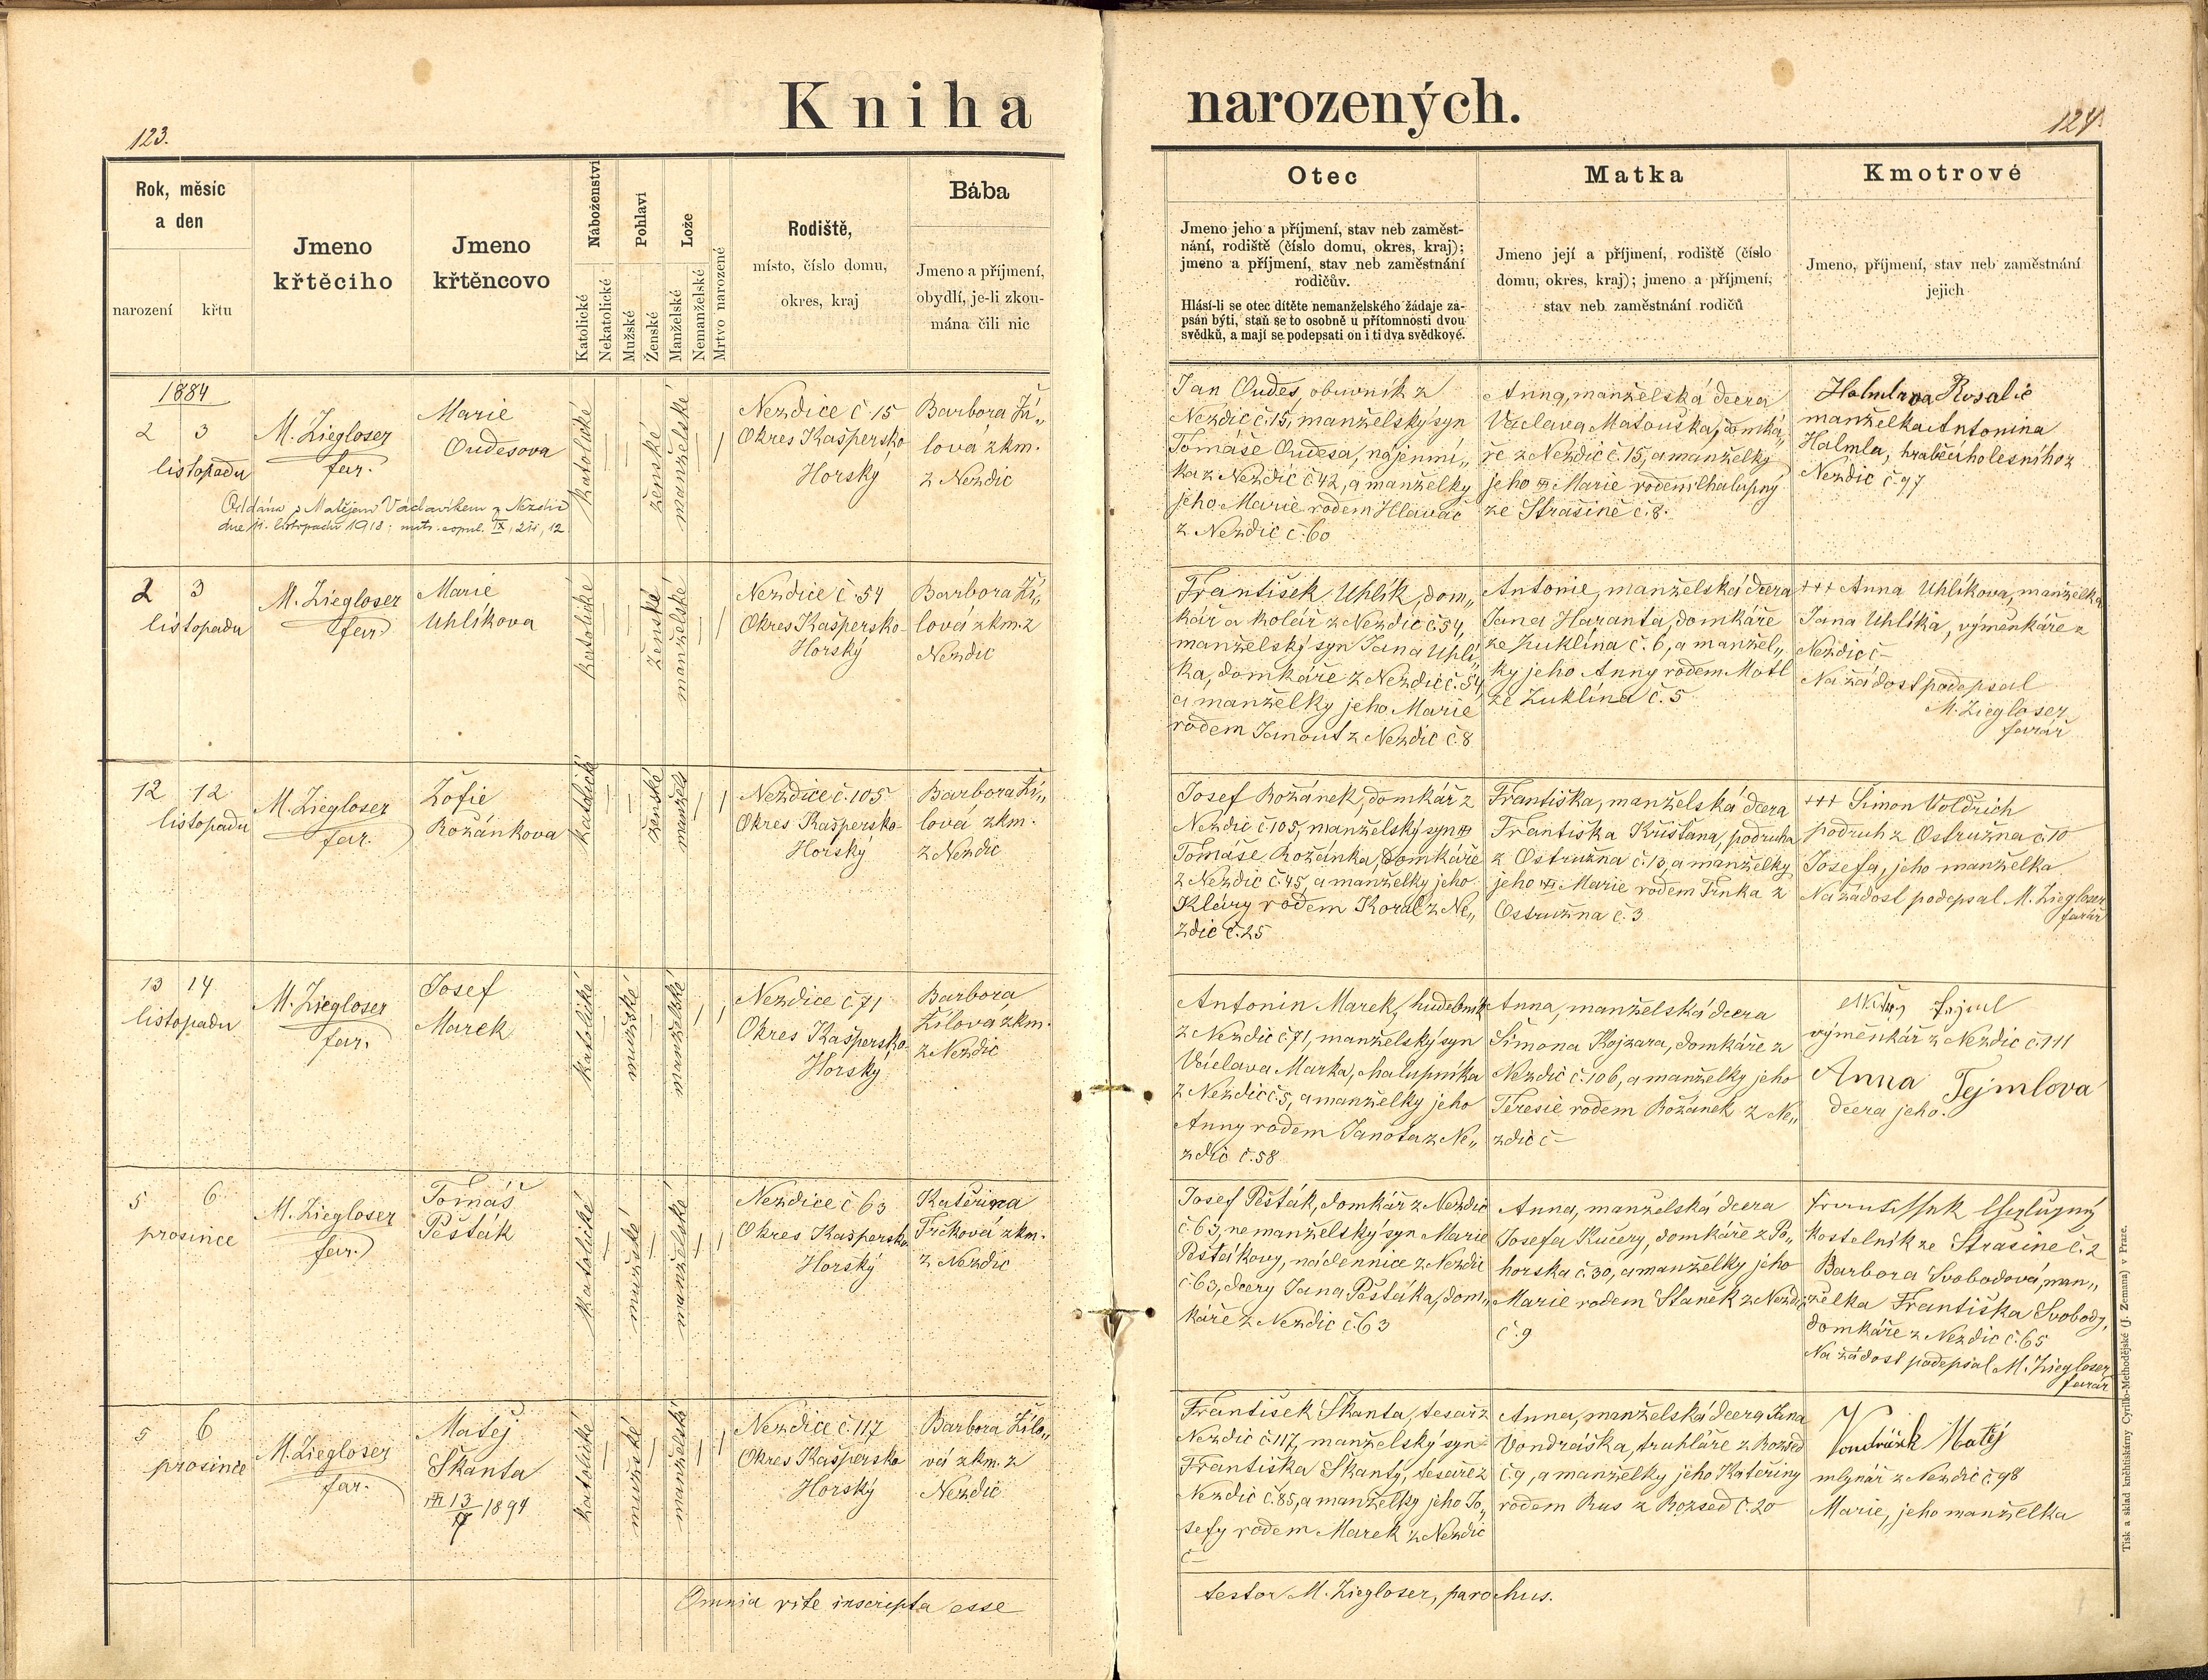 Kniha narozených.
123.
124.
Rok, měsíc
a den
narození
křtu
Jmeno
křtěcího
Jmeno
křtěncovo
Náboženství
Katolické
Nekatolické
Pohlaví
Mužské
Ženské
Lože
Manželské
Nemanželské
Mrtvo narozené
Rodiště,
místo, číslo domu,
okres, kraj
Bába
Jmeno a příjmení,
obydlí, je-li zkou-
mána čili nic
Otec
Jmeno jeho a příjmení, stav neb zaměst-
nání, rodiště (číslo domu, okres, kraj);
jmeno a příjmení, stav neb zaměstnání
rodičův.
Hlásí-li se otec dítěte nemanželského žádaje za-
psán býti, staň se to osobně u přítomnosti dvou
svědků, a mají se podepsati on i ti dva svědkové.
Matka
Jmeno její a příjmení, rodiště (číslo
domu, okres, kraj); jmeno a příjmení,
stav neb zaměstnání rodičů
Kmotrové
Jmeno, příjmení, stav neb zaměstnání
jejich
1884
2 3
listopadu
M. Ziegloser
far.
Marie
Oudesova
katolické
ženské
manželské
Nezdice č 15
Okres Kašpersko
Horský
Barbora Ží„
lová zkm.
z Nezdic
Jan Oudes, obuvník z
Nezdic č. 15, manželský syn
Tomáše Oudesa, nájemní„
ka z Nezdic č 42, a manželky
jeho Marie rodem Hlaváč
z Nezdic č. 60
Anna, manželská dcera
Václava Matouška, domká„
ře z Nezdic č. 15, a manželky
jeho Marie rodem Chalupný
ze Strašině č. 8.
Halmlova Rosalie
manželka Antonina
Halmla, hraběcího lesního z
Nezdic č. 97
Oddána s Matějem Václavíkem z Nezdic
dne 11. listopadu 1918; matr. copul. IX, 12
2 3
listopadu
M. Ziegloser
far.
Marie
Uhlíkova
katolické
ženské
manželské
Nezdice č 54
Okres Kašpersko-
Horský
Barbora Ží„
lová zkm. z
Nezdic
František Uhlík, dom„
kář a kolář z Nezdic č 54,
manželský syn Jana Uhlí„
ka, domkáře z Nezdic č. 54
a manželky jeho Marie
rodem Janout z Nezdic č. 8
Antonie, manželská dcera
Jana Haranta, domkáře
ze Zuklína č. 6, a manžel„
ky jeho Anny rodem Motl
ze Zuklína č. 5
+++ Anna Uhlíkova, manželka
Jana Uhlíka, výměnkáře z
Nezdic č –
Na žádost podepsal
M. Ziegloser
farář
12 12
listopadu
M. Ziegloser
far.
Žofie
Rožánkova
katolické
ženské
manžels
Nezdice č. 105
Okres Kašpersko-
Horský
Barbora Ží„
lová zkm.
z Nezdic
Josef Rožánek, domkář z
Nezdic č. 105, manželský syn
Tomáše Rožánka, domkáře
z Nezdic č. 45, a manželky jeho
Kláry rodem Koral z Ne„
zdic č. 25
Františka, manželská dcera
Františka Křišťana, podruha
z Ostružna č. 10, a manželky
jeho Marie rodem Trnka z
Ostružna č. 3
+++ Šimon Voldřich
podruh z Ostružna č. 10
Josefa, jeho manželka
Na žádost podepsal M. Ziegloser
farář
13 14
listopadu
M. Ziegloser
far.
Josef
Marek
katolické
mužské
manželské
Nezdice č 71
Okres Kašpersko
Horský
Barbora
Žílová zkm.
z Nezdic
Antonin Marek, hudebník
z Nezdic č. 71, manželský syn
Václava Marka, chalupníka
z Nezdic č 5, a manželky jeho
Anny rodem Janota z Ne„
zdic č. 58
Anna, manželská dcera
Šimona Kojzara, domkáře z
Nezdic č. 106, a manželky jeho
Teresie rodem Rožánek z Ne„
zdic č –
výměnkář z Nezdic č. 111
Anna Tejmlova
dcera jeho.
5 6
prosince
M. Ziegloser
far.
Tomáš
Pešťák
katolické
mužské
manželské
Nezdice č 63
Okres Kašpersko
Horský
Kateřina
Trčková zkm.
z Nezdic
Josef Pešťák, domkář z Nezdic
č. 63, nemanželský syn Marie
Pešťákovy, nádennice z Nezdic
č 63, dcery Jana Pešťáka, dom„
káře z Nezdic č. 63
Anna, manželská dcera
Josefa Kučery, domkáře z Po„
horska č. 30, a manželky jeho
Marie rodem Staněk z Nezdic
č. 9
kostelník ze Strašine č. 2
Barbora Svobodová, man„
želka Františka Svobody,
domkáře z Nezdic č. 65
Na žádost podepsal M. Ziegloser
farář
5 6
prosince
M. Ziegloser
far.
Matěj
Škanta
13 1894
katolické
mužské
manželské
Nezdice č. 117
Okres Kašpersko
Horský
Barbora Žílo„
vá zkm. z
Nezdic
František Škanta, tesař z
Nezdic č. 117, manželský syn
Františka Škanty, tesaře z
Nezdic č. 85, a manželky jeho Jo„
sefy rodem Marek z Nezdic
č –
Anna, manželská dcera Jana
Vondráška, truhláře z Rozsed
č. 9, a manželky jeho Kateřiny
rodem Rus z Rozsed č. 20
Matěj
mlynář z Nezdic č. 98
Marie, jeho manželka
Omnia rite inscripta esse
testor M. Ziegloser, parochus.
Tisk a sklad kněhtiskárny Cyrillo-Methodějské (J. Zeman) v Praze.